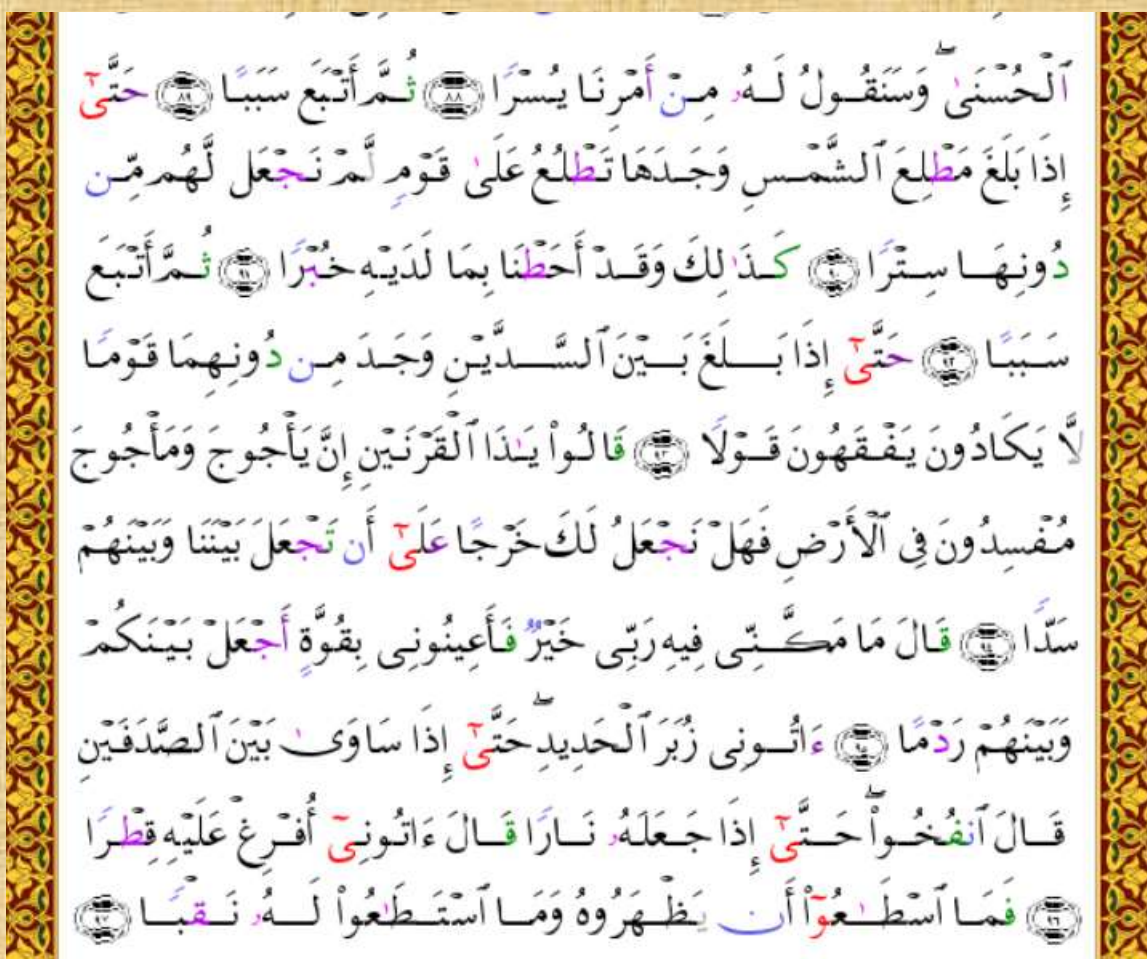 ٱلْحُسْنَىٰ ۖ وَسَنَقُولُ لَهُۥ مِنْ أَمْرِنَا يُسْرًا ﴿٨٨﴾ ثُمَّ أَتْبَعَ سَبَبًا ﴿٨٩﴾ حَتَّىٰٓ
إِذَا بَلَغَ مَطْلِعَ ٱلشَّمْسِ وَجَدَهَا تَطْلُعُ عَلَىٰ قَوْمٍ لَّمْ نَجْعَل لَّهُم مِّن
دُونِهَا سِتْرًا ﴿٩٠﴾ كَذَٰلِكَ وَقَدْ أَحَطْنَا بِمَا لَدَيْهِ خُبْرًا ﴿٩١﴾ ثُمَّ أَتْبَعَ
سَبَبًا ﴿٩٢﴾ حَتَّىٰٓ إِذَا بَلَغَ بَيْنَ ٱلسَّدَّيْنِ وَجَدَ مِن دُونِهِمَا قَوْمًا
لَّا يَكَادُونَ يَفْقَهُونَ قَوْلًا ﴿٩٣﴾ قَالُوا۟ يَـٰذَا ٱلْقَرْنَيْنِ إِنَّ يَأْجُوجَ وَمَأْجُوجَ
مُفْسِدُونَ فِى ٱلْأَرْضِ فَهَلْ نَجْعَلُ لَكَ خَرْجًا عَلَىٰٓ أَن تَجْعَلَ بَيْنَنَا وَبَيْنَهُمْ
سَدًّا ﴿٩٤﴾ قَالَ مَا مَكَّنِّى فِيهِ رَبِّى خَيْرٌ فَأَعِينُونِى بِقُوَّةٍ أَجْعَلْ بَيْنَكُمْ
وَبَيْنَهُمْ رَدْمًا ﴿٩٥﴾ ءَاتُونِى زُبَرَ ٱلْحَدِيدِ ۖ حَتَّىٰٓ إِذَا سَاوَىٰ بَيْنَ ٱلصَّدَفَيْنِ
قَالَ ٱنفُخُوا۟ ۖ حَتَّىٰٓ إِذَا جَعَلَهُۥ نَارًا قَالَ ءَاتُونِىٓ أُفْرِغْ عَلَيْهِ قِطْرًا
﴿٩٦﴾ فَمَا ٱسْطَـٰعُوٓا۟ أَن يَظْهَرُوهُ وَمَا ٱسْتَطَـٰعُوا۟ لَهُۥ نَقْبًا ﴿٩٧﴾